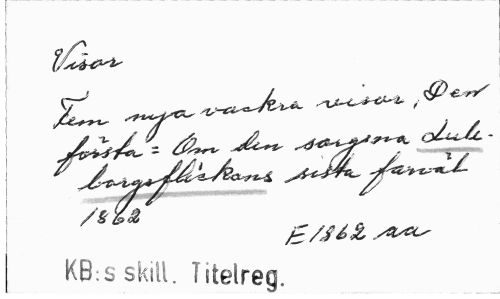 Visor
Fem nya vackra visor, Den
första = Om den sorgsna Lule-
borgsflickans sista farväl
1862
E 1862 aa
KB:s skill. Titelreg.